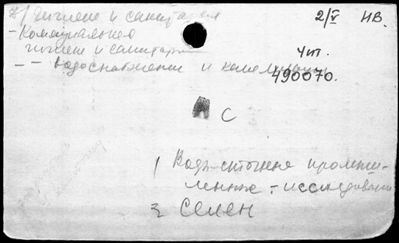 гигиена и санитария 2/V НВ.
- Коммунальная
гигиена и санитар
Чит.
- - водоснабжение и канализации
490070.
С
1 Воды сточные промыш-
ленные - исследован
2 Селен